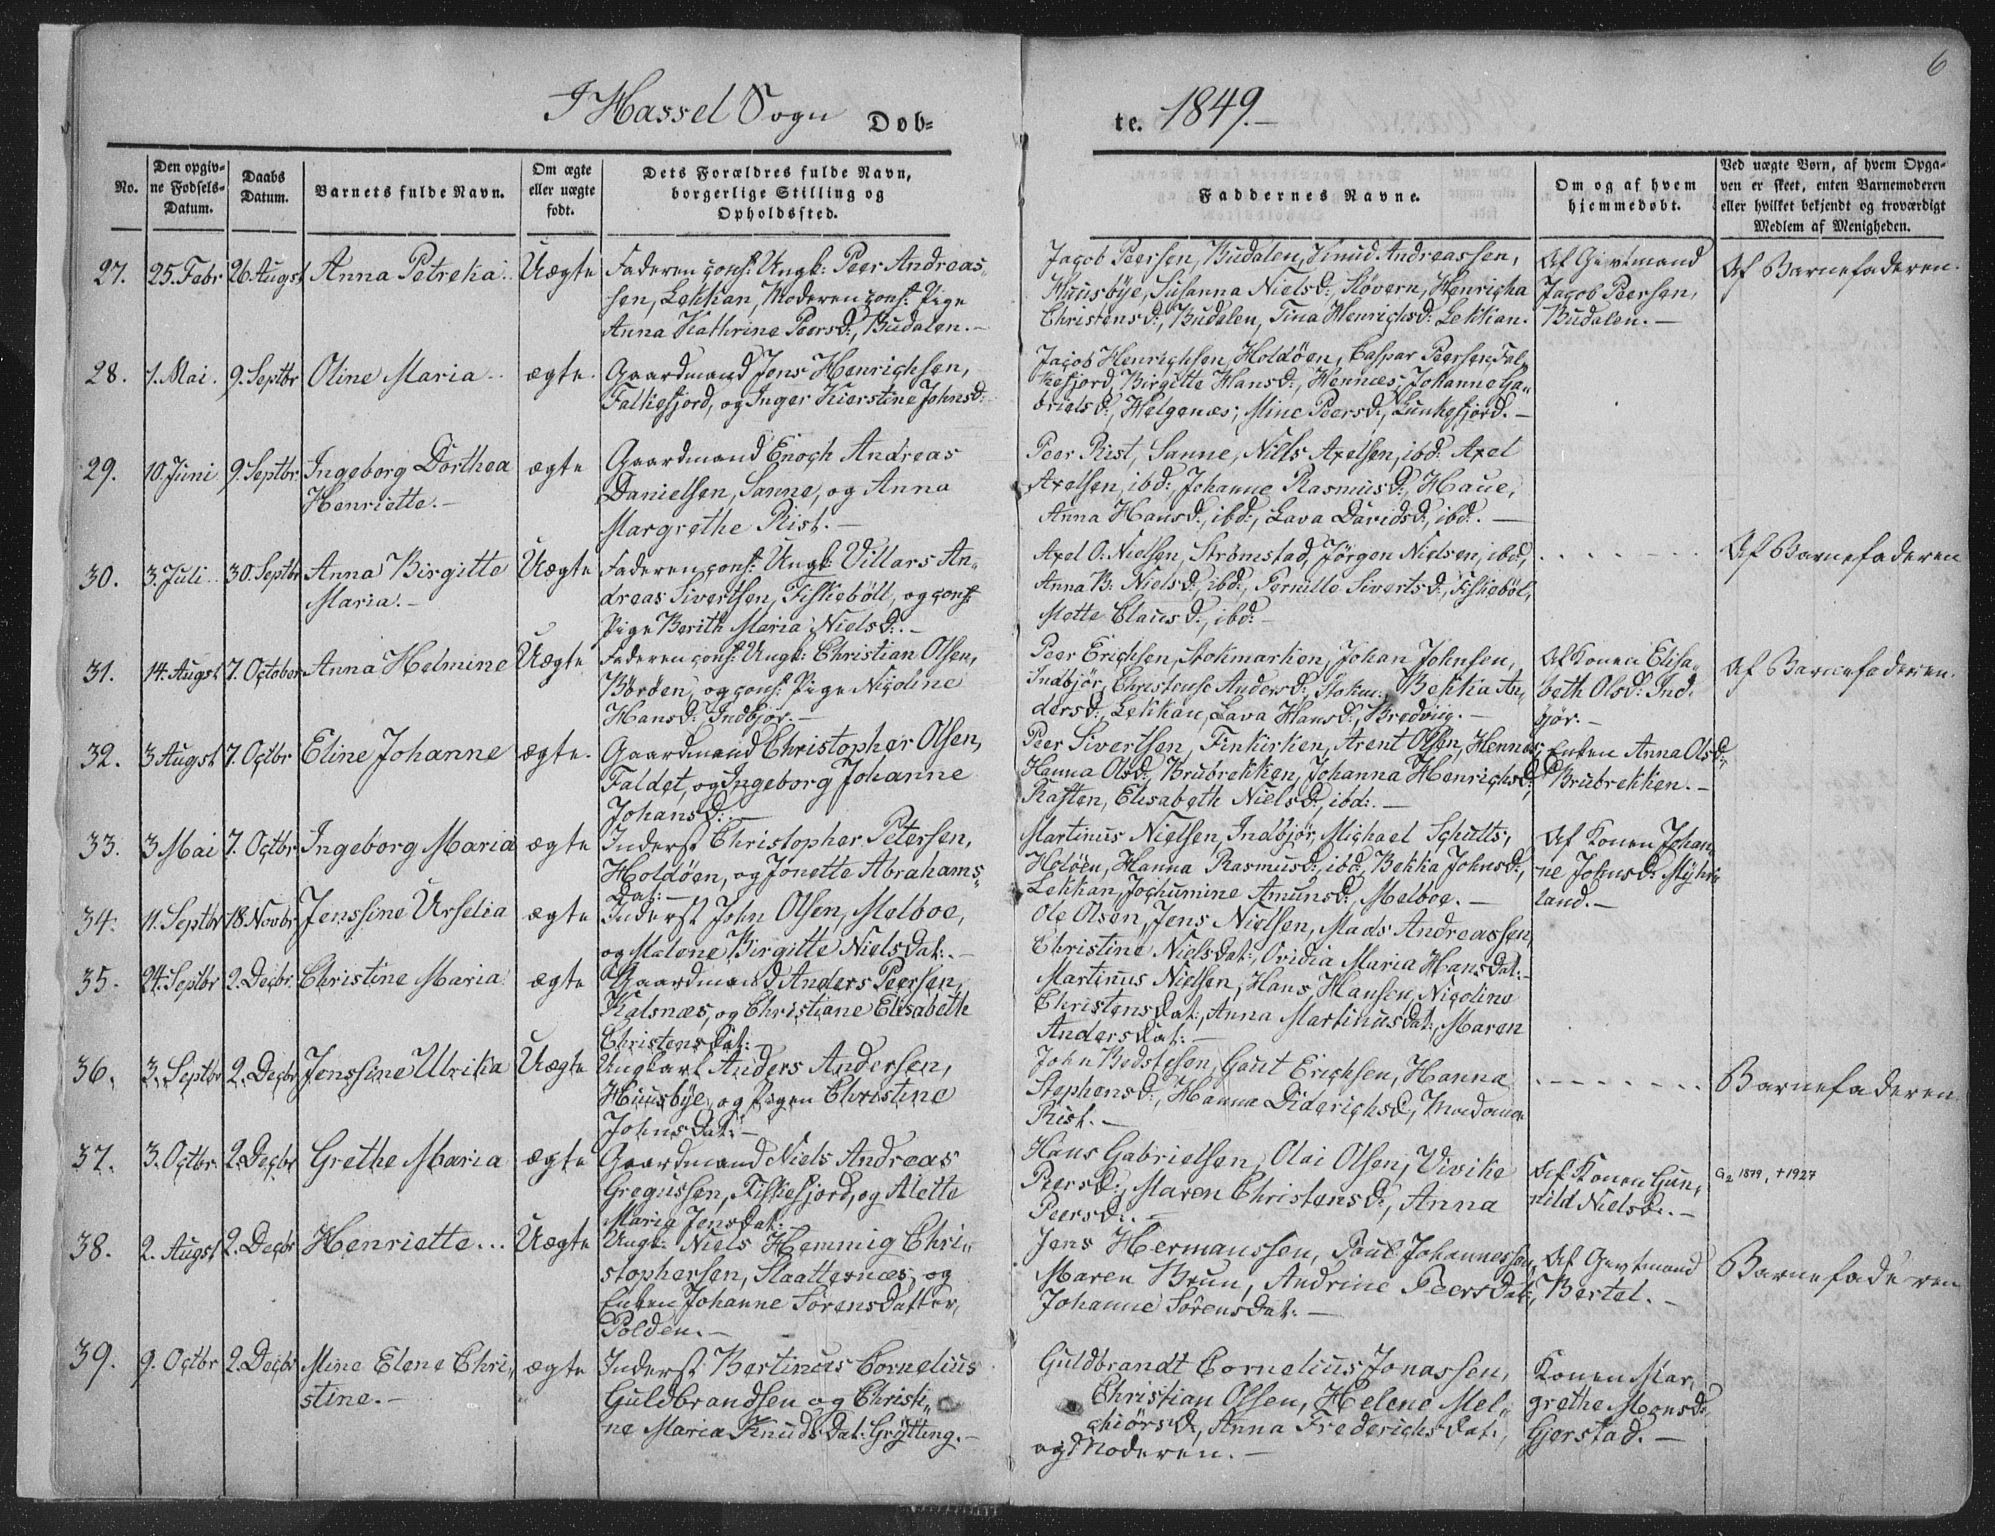 6
I Hassel Sogn Døb=
te. 1849.-
No.
Den opgiv-
ne Fødsels-
Datum.
Daabs
Datum.
Barnets fulde Navn.
Om ægte
eller uægte
født.
Dets Forældres fulde Navn,
borgerlige Stilling og
Opholdssted.
Faddernes Navne.
Om og af hvem
hjemmedøbt.
Ved uægte Børn, af hvem Opga-
ven er skeet, enten Barnemoderen
eller hvilket bekjendt og troværdigt
Medlem af Menigheden.
27. 25. Febr 26 Augst Anna Petrekia. Uægte
Faderen conf: Ungk: Peer Andreas-
sen, Lekkan, Moderen conf: Pige
Anna Kathrine Peersd:, Budalen.-
Jacob Peersen, Budalen, Knud Andreassen,
Huusbÿe, Susanna Nielsd:, Støvern, Henricha
Christensd:, Budalen, Tina Henrichsd: Lekkan.
Af Giftmand
Jacob Peersen,
Budalen.-
Af Barnefaderen.
28. 1. Mai. 9. Septbr Oline Maria.. ægte.
Gaardmand Jens Henrichsen,
Falkefjord, og Inger Kierstine Johnsd:
Jacob Henrichsen, Holdöen, Caspar Peersen, Fal-
kefjord, Birgitte Hansd:, Hennæs, Johanne Ga-
brielsd:, Helgenæs, Mine Peersd:, Lunkefjord.-
29. 10. Juni 9. Septbr. Ingeborg Dorthea
Henriette.-
ægte
Gaardmand Enoch Andreas
Danielsen, Sanne, og Anna
Margrethe Rist.-
Peer Rist, Sanne, Niels Axelsen, ibd: Axel
Axelsen, ibd:, Johanne Rasmusd:, Haue,
Anna Hansd:, ibd:, Lava Davidsd:, ibd:.-
30. 3. Juli. 30. Septbr Anna Birgitte
Maria.-
Uægte
Faderen conf: Ungk: Villars An-
dreas Sivertsen, Fiskeböll, og conf:
Pige Berith Maria Nielsd:.-
Axel O. Nielsen, Strömstad, Jörgen Nielsen, ibd:,
Anna B. Nielsd:, ibd:, Pernille Sivertsd:, Fiskeböl,
Mette Clausd:, ibd:-
Af Barnefaderen
31. 14. Augst 7. October Anna Helmine Uægte
Faderen conf: Ungk: Christian Olsen,
Böröen, og conf: Pige Nicoline
Hansd: Indbjör.-
Peer Erichsen, Stokmarken, Johan Johnsen,
Indbjör, Christense Andersd:, Stokm:, Bekkia An-
dersd:, Lekkan, Lava Hansd:, Bredvig.-
Af Konen Elisa-
beth Olsd: Ind-
björ.-
Af Barnefaderen.
32. 3 Augst 7. Octbr Eline Johanne ægte.
Gaardmand Christopher Olsen,
Faldet, og Ingeborg Johanne
Johansd:.-
Peer Sivertsen, Finkirken, Arent Olsen, Hennæs,
Hanna Olsd:, Brubrekken, Johanna Henrichsd:,
Raften, Elisabeth Nielsd:, ibd:.-
Enken Anna Olsd:,
Brubrekken.-
33. 3 Mai 7. Octbr. Ingeborg Maria ægte
Inderst Christopher Petersen,
Holdöen, og Jonette Abrahams-
dat:-
Martinus Nielsen, Indbjör, Michael Schults,
Holöen, Hanna Rasmusd:, ibd:, Bekka Johnsd:,
Lekkan, Jochumine Amunsd:, Melboe.-
Af Konen Johan-
ne Johnsd: Mÿhr-
land.-
34. 11. Septbr 18. Novbr. Jenssine Urselia ægte
Inderst John Olsen, Melboe,
og Malene Birgitte Nielsdat:.-
Ole Olsen, Jens Nielsen, Mads Andreassen,
Christine Nielsdat:, Oridia Maria Hansdat:.-
35. 24. Septbr 2. Decbr. Christine Maria ægte
Gaardmand Anders Peersen,
Kalsnæs, og Christiane Elisabeth
Christensdat:-
Martinus Nielsen, Hans Hansen, Nicoline
Christensdat:, Anna Martinusdat:, Maren
Andersdat:-
36. 3. Septbr 2. Decbr Jenssine Ulrikia Uægte
Ungkarl Anders Andersen,
Huusbÿe, og Pigen Christine
Johnsdat:-
John Bodstesen, Gaut Erichsen, Hanna
Stephensd:, Hanna Diderichsd:, Madame
Rist.-
Barnefaderen.
37. 3. Octbr. 2. Decbr Grethe Maria ægte
Gaardmand Niels Andreas
Gregussen, Fiskefjord, og Alette
Maria Jensdat:
Hans Gabrielsen, Olai Olsen, Vivike
Peersd:, Maren Christensd:, Anna
Peersd:.-
Af Konen Gun-
nild Nielsd:.-
G2 1879, +1927
38. 2. Augst 2. Decbr Henriette... Uægte
Ungk: Niels Hemmig Chri-
stophersen, Slaatternæs, og
Enken Johanne Sörensdatter,
Polden.-
Jens Hermanssen, Poul Johannessen,
Maren Brun, Andrine Peersdat:,
Johanne Sörensdat:.-
Af Gavtmand
Bertel.-
Barnefaderen
39. 9. Octbr 2. Decbr Mine Elene Chri-
stine.-
ægte
Inderst Bertinus Cornelius
Guldbrandsen og Christi-
ne Maria Knudsdat: Grÿtting.-
Guldbrandt Cornelius Jonassen,
Christian Olsen, Helene Mel-
chiörsd:, Anna Frederichsdat:,
og Moderen.-
Konen Mar-
grethe Monsd:
Gjerstad.-